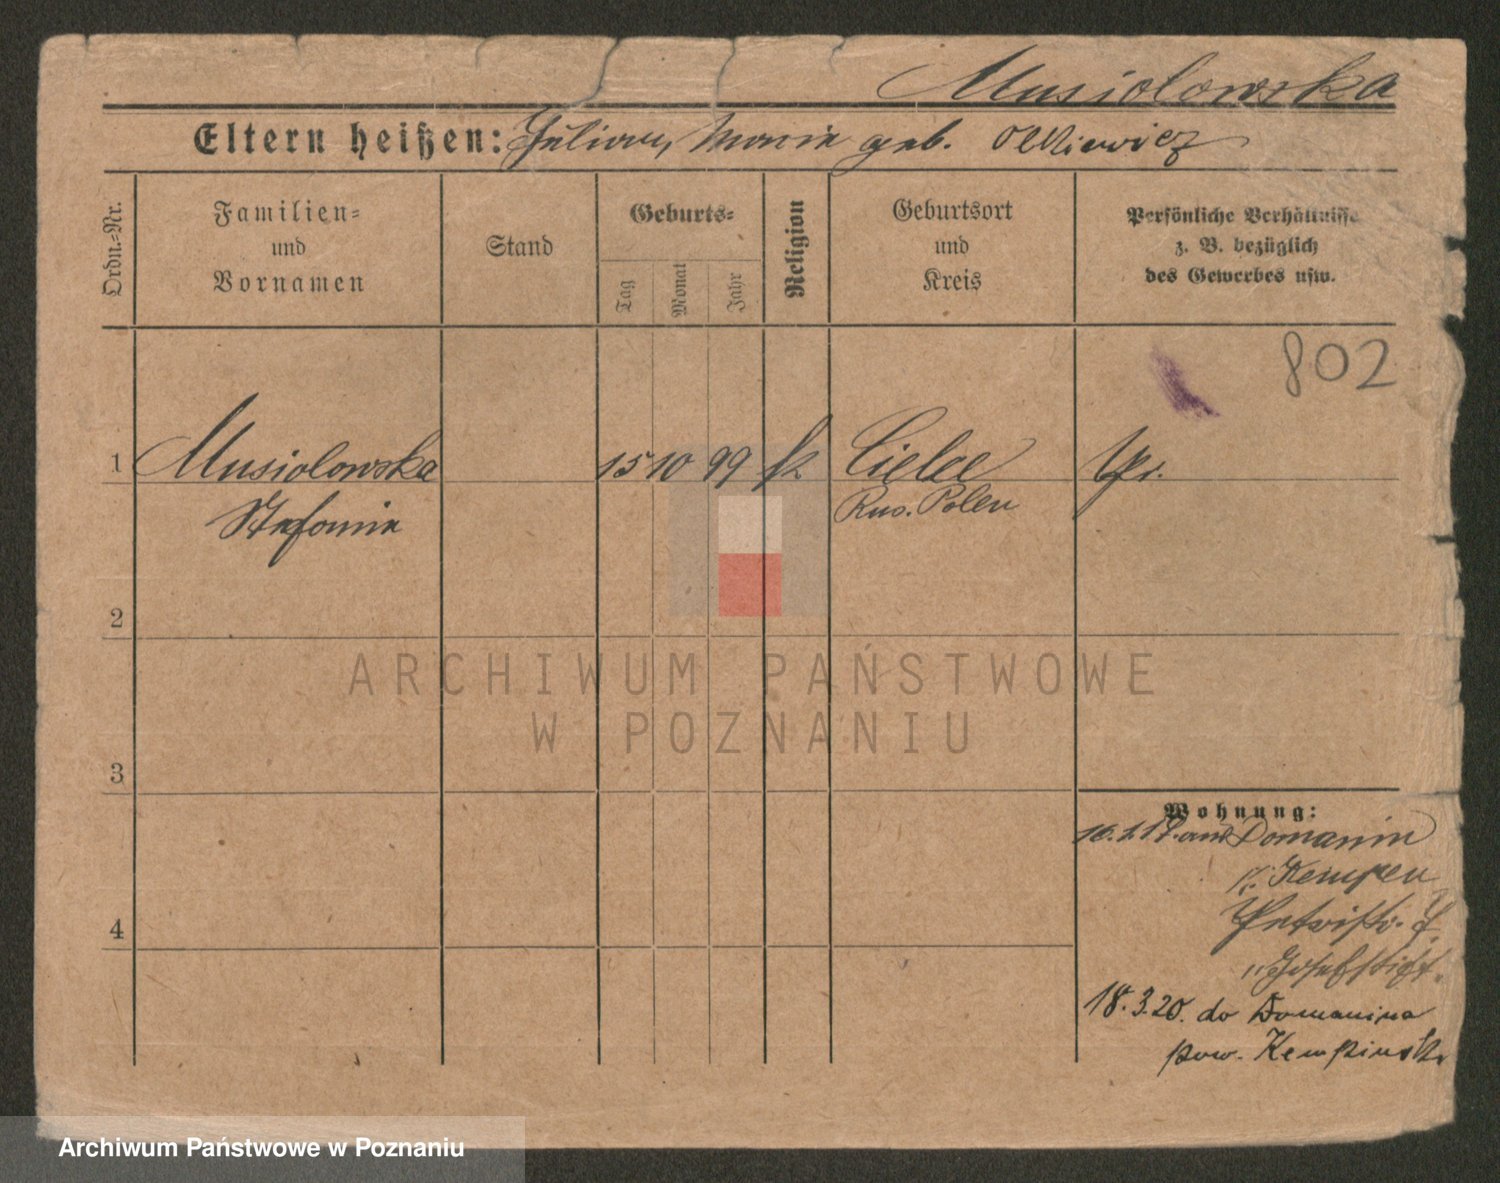 Musiolowska
Eltern heißen: Julian, Maria geb. Olkiewicz
Ordn.-Nr.
Familien-
und
Vornamen
Stand
Geburts-
Tag
Monat
Jahr
Religion
Geburtsort
und
Kreis
Persönliche Verhältnisse
z. B. bezüglich
des Gewerbes usw.
802
1 Musiolowska 15 10 99 k Cielce Pr.
Stefania Rus. Polen
2
ARCHIWUM PAŃSTWOWE
W POZNANIU
3
Wohnung:
Domanin
Kempen
4
Josefstift
18.3.20. do Domanina
pow. Kempinski
Archiwum Państwowe w Poznaniu